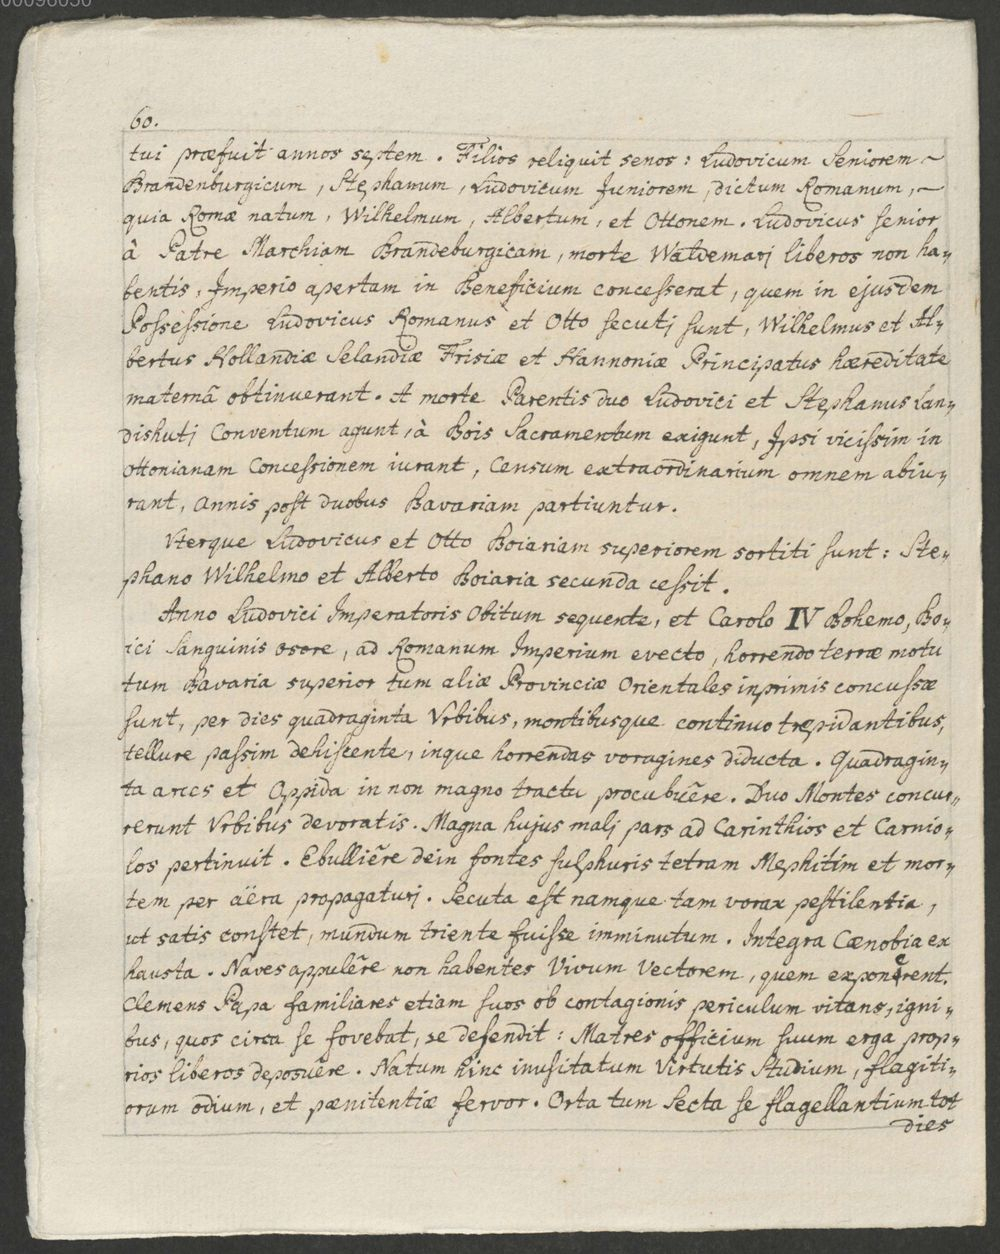 00096030
60.
tui præfuit annos septem. Filios reliquit senos: Ludovicum Seniorem ~
Brandenburgicum, Stephanum, Ludovicum Juniorem, dictum Romanum, ~
quia Romæ natum, Wilhelmum, Albertum, et Ottonem. Ludovicus senior
à Patre Marchiam Brandeburgicam, morte Waldemarj liberos non ha„
bentis, Imperio apertam in Beneficium concesserat, quem in ejusdem
Possessione Ludovicus Romanus et Otto secutj sunt, Wilhelmus et Al„
bertus Hollandiæ Selandiæ Frisiæ et Hannoniæ Principatus hæreditate
maternâ obtinuerant. A morte Parentis duo Ludovici et Stephanus Lan„
dishutj Conventum agunt, à Bois Sacramentum exigunt, Ipsi vicissim in
Ottonianam Concessionem iurant, Censum extraordinarium omnem abiu„
rant, Annis post duobus Bavariam partiuntur.
Uterque Ludovicus et Otto Boiariam superiorem sortiti sunt: Ste„
phano Wilhelmo et Alberto Boiaria secunda cessit.
Anno Ludovici Imperatoris Obitum sequente, et Carolo IV Bohemo, Bo„
ici Sanguinis osore, ad Romanum Imperium evecto, horrendo terræ motu
tum Bavaria superior tum aliæ Provinciæ Orientales inprimis concussæ
sunt, per dies quadraginta Vrbibus, montibusque continuo trepidantibus,
tellure passim dehiscente, inque horrendas voragines diducta. Quadragin„
ta arces et Oppida in non magno tractu procubuêre. Duo Montes concur„
rerunt Vrbibus devoratis. Magna hujus malj pars ad Carinthios et Carnio„
los pertinuit. Ebulliêre dein fontes sulphuris tetram Mephitim et mor„
tem per äëra propagaturj. Secuta est namque tam vorax pestilentia,
ut satis constet, mundum triente fuisse imminutum. Integra Cœnobia ex
hausta. Naves appulêre non habentes Vivum Vectorem, quem exponerent.
Clemens Papa familiares etiam suos ob contagionis periculum vitans, igni„
bus, quos circa se fovebat, se defendit: Matres officium suum erga prop„
rios liberos deposuêre. Natum hinc inusitatum Virtutis Studium, flagiti„
orum odium, et pænitentiæ fervor. Orta tum Secta se flagellantium tot
dies